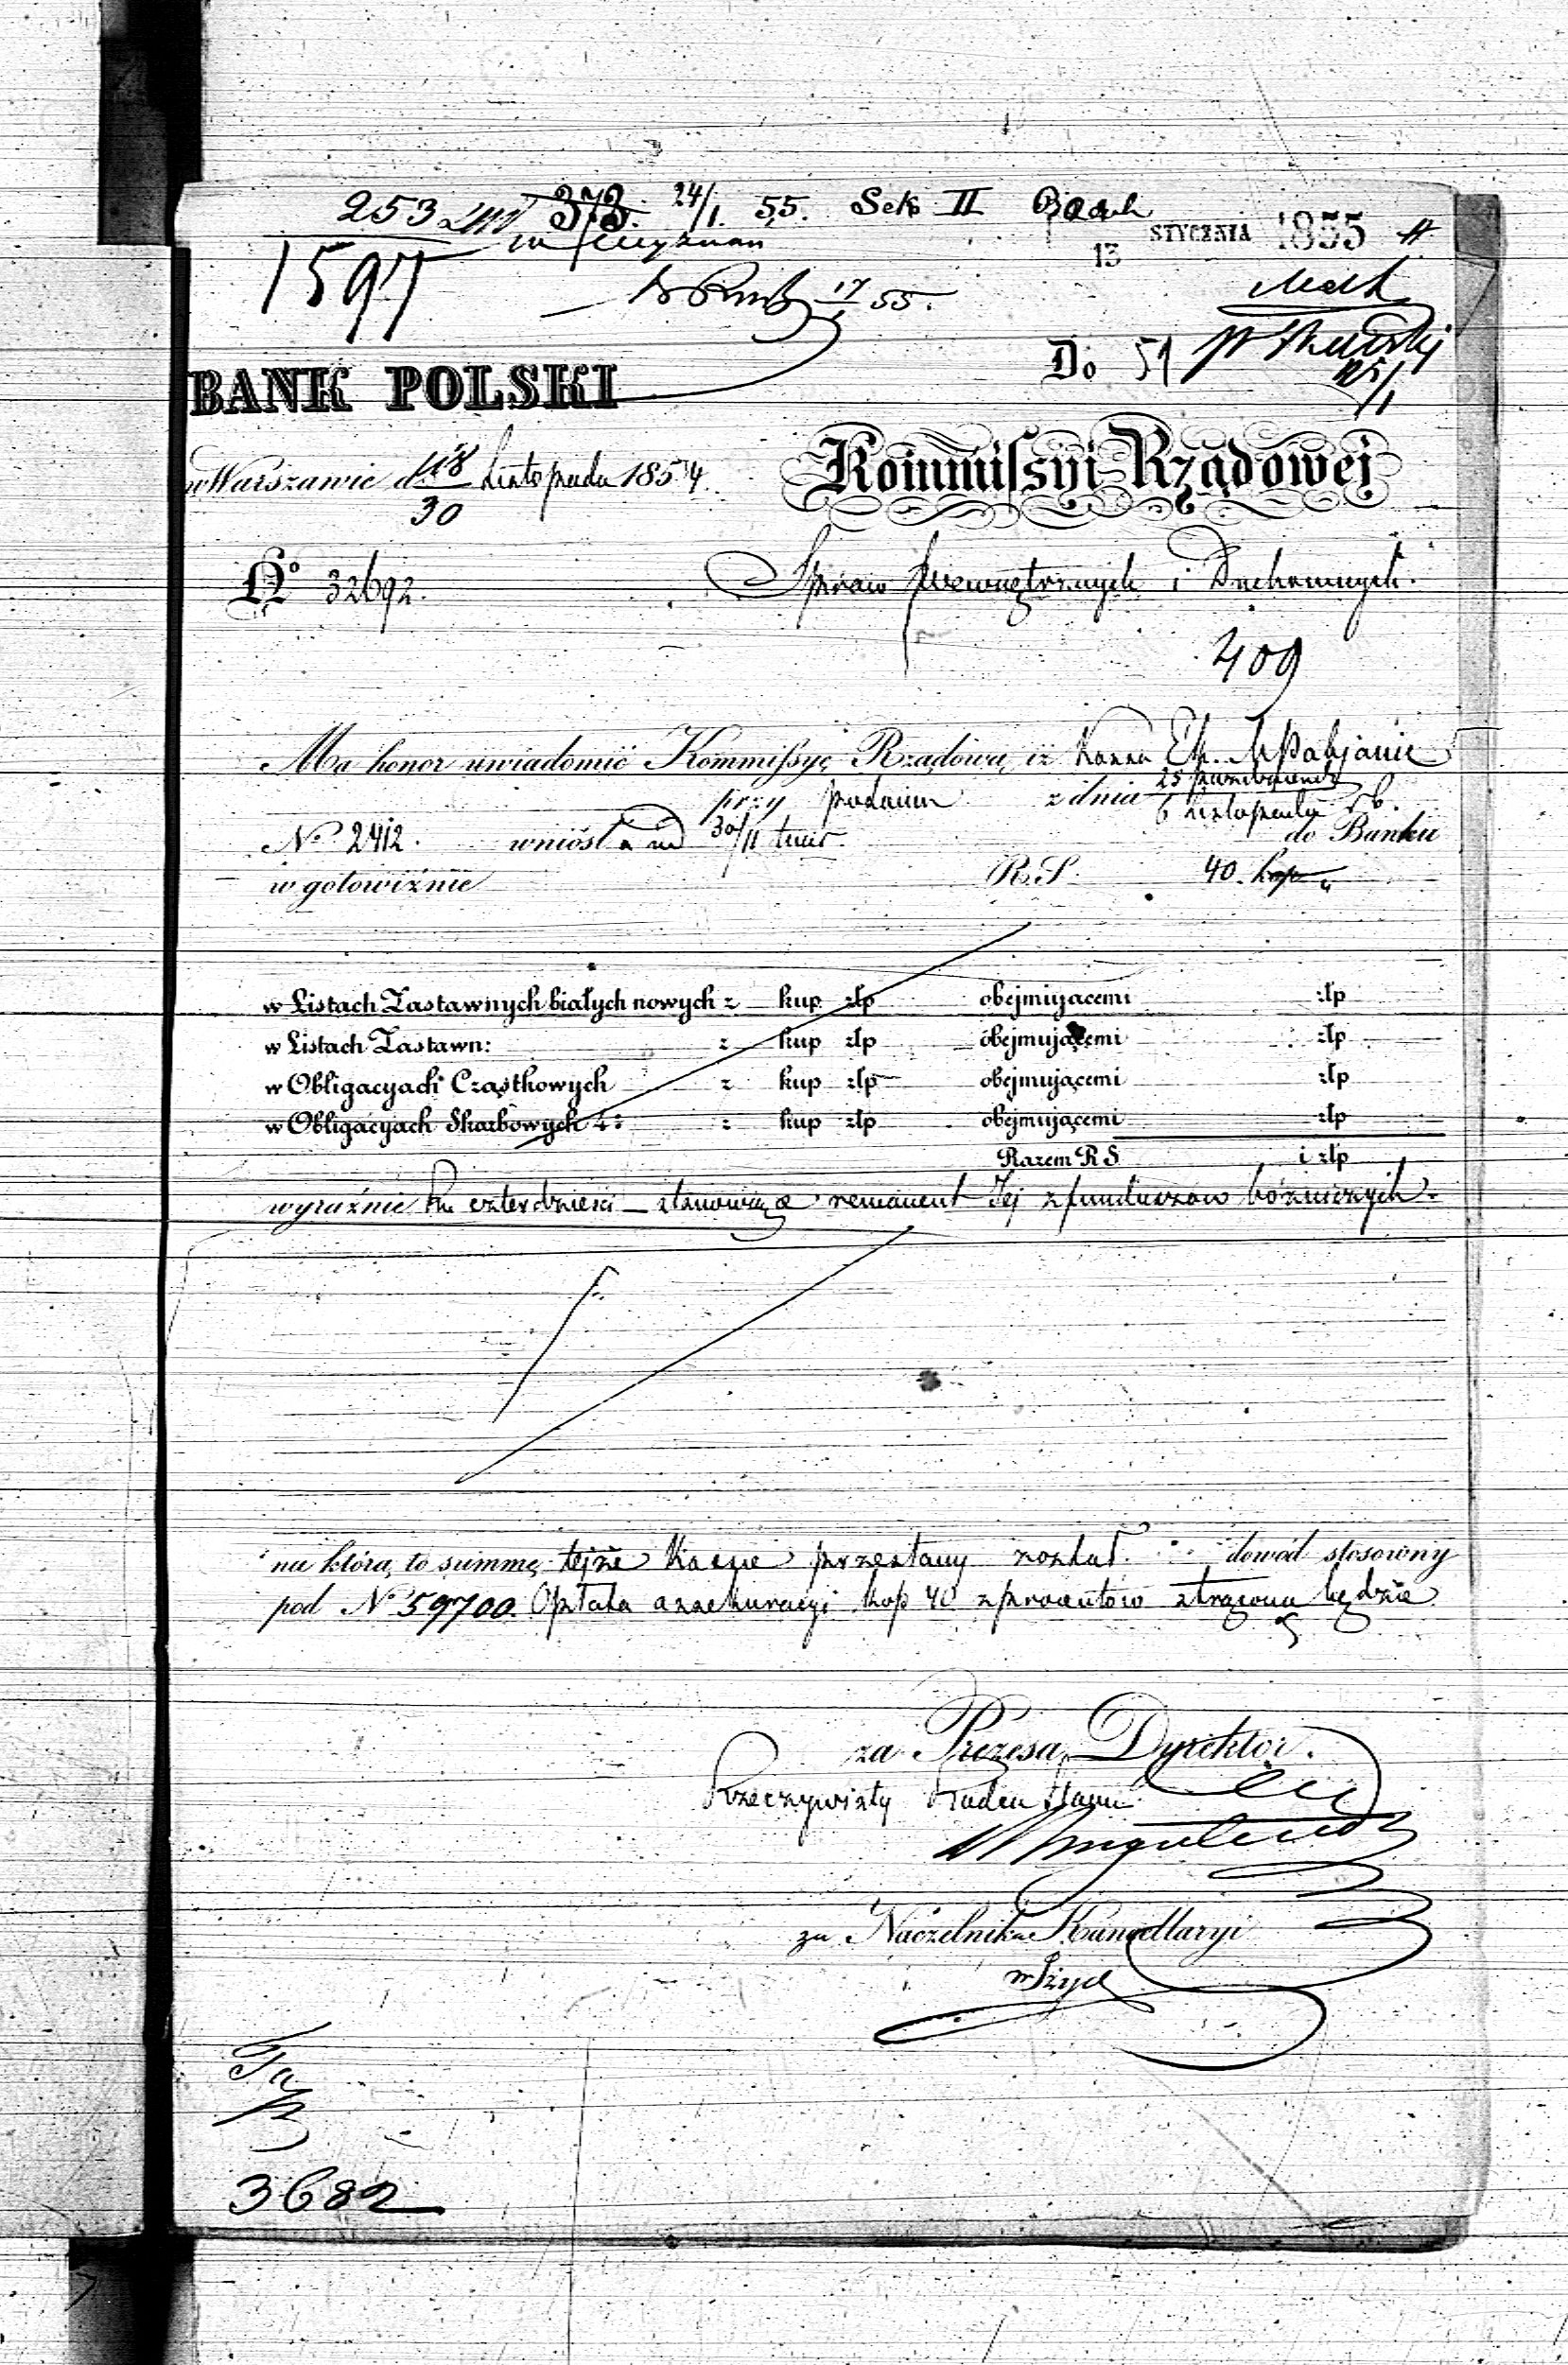 253 373. 24/1. 55. Sek II
13 STYCZNIA 1855
1597
17 55.
Do 51
BANK POLSKI
w Warszawie d 18/30 Listopada 1854.
Kommissyi Rządowej
No 32692.
Spraw Wewnętrznych i Duchownych.
409
Ma honor uwiadomić Kommissyę Rządową, iż Kassa Ek. M. Pabjanic
przy podaniu z dnia 25 Października
6 Listopada r. b.
No 2412. wniosła 30/11 do Banku
w gotowiźnie R.S. 40. kop
w Listach Zastawnych białych nowych z kup złp obejmującemi złp
w Listach Zastawn: z kup złp obejmującemi złp
w Obligacyach Cząstkowych z kup złp obejmującemi złp
w Obligacyach Skarbowych 4: z kup złp obejmującemi złp
Razem RS i złp
wyraźnie czterdzieści stanowiące remanent Jej z funduszów bóżniczych.
na którą to summę tejże Kassie przesłany został. dowód stosowny
pod No 59700. Opłata assekuracyi kop 40 z procentów strąconą będzie
za Prezesa, Dyrektor.
Rzeczywisty Radca Stanu
za Naczelnika Kancellaryi
3682